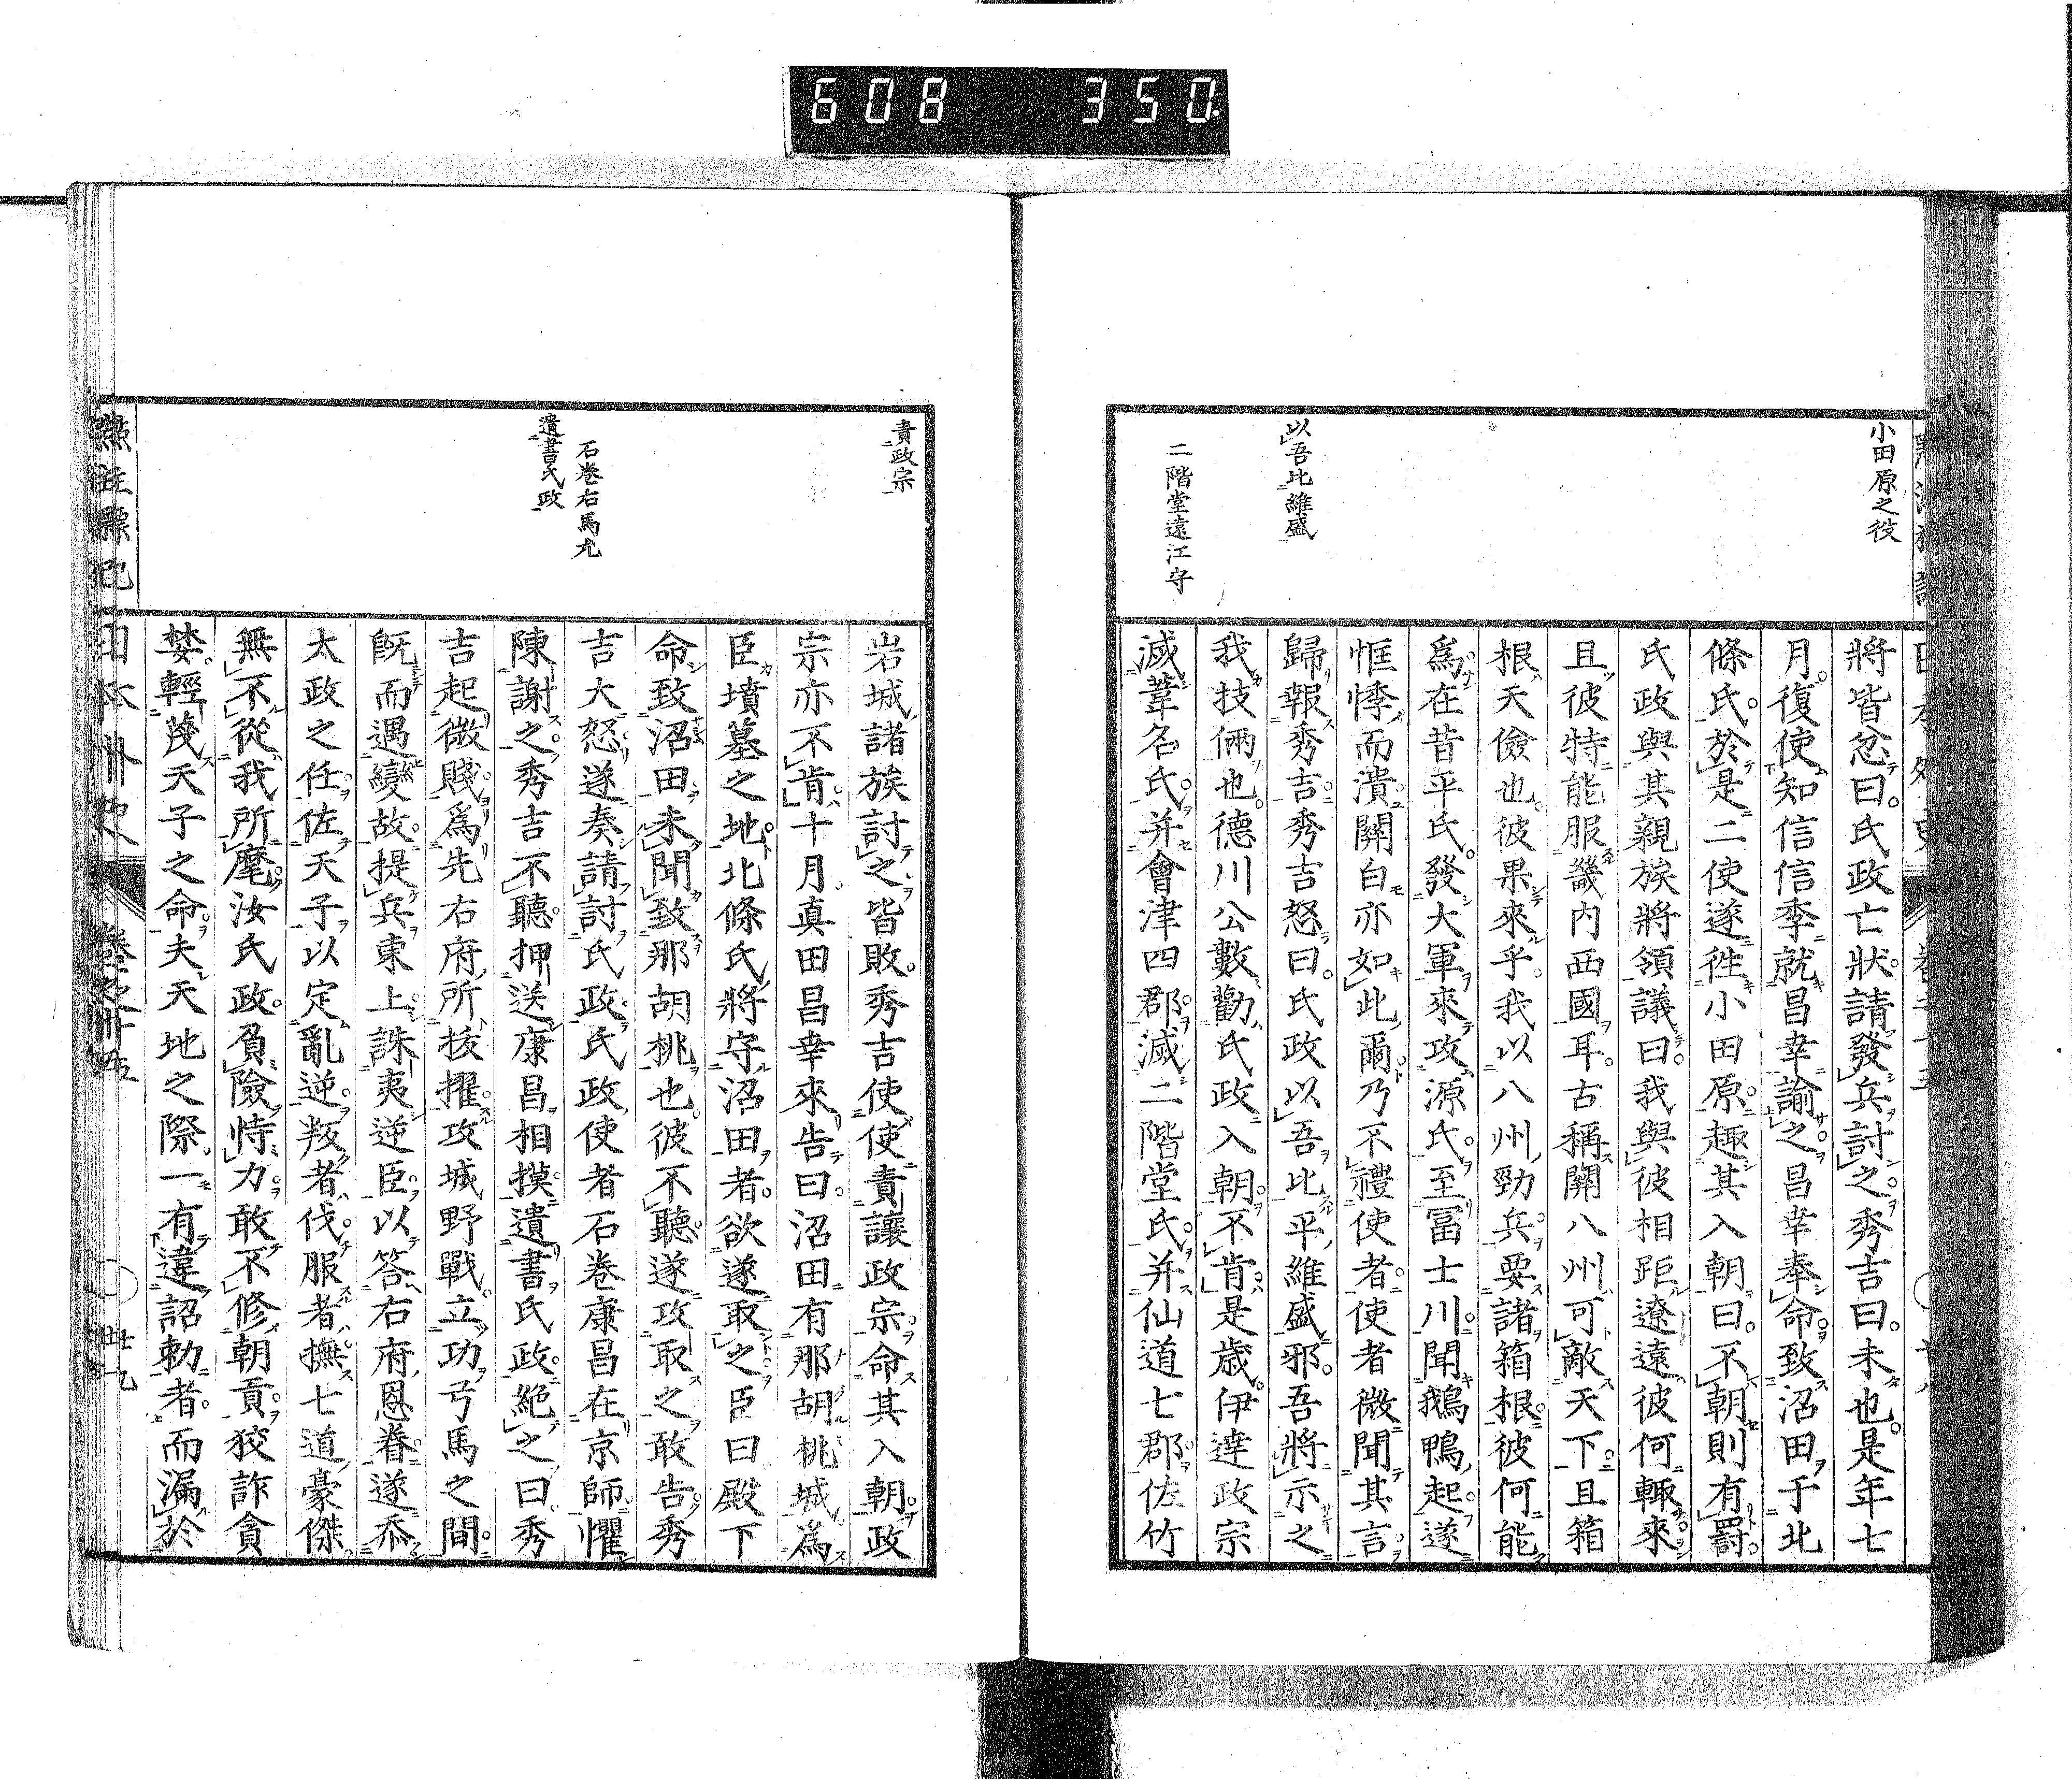 608 350
小田原之役
將皆忿曰。氏政亡狀。請發兵討之。秀吉曰。未也。是年七
月。復使知信信季就昌幸諭之。昌幸奉命致沼田于北
條氏。於是二使遂徃小田原。趣其入朝曰。不朝則有罸。
氏政與其親族將領議曰。我與彼相距遼遠。彼何輙來。
且彼特能服畿内西國耳。古稱關八州可敵天下。且箱
根天儉也。彼果來乎。我以八州勁兵。要諸箱根。彼何能
爲。在昔平氏。發大軍來攻源氏。至冨士川。聞鵝鴨起。遂
恇悸而潰。關白亦如此爾。乃不禮使者。使者微聞其言
以吾比維盛
歸報秀吉。秀吉怒曰。氏政以吾比平維盛邪。吾將示之
我技倆也。德川公數勸氏政入朝。不肯。是歳。伊達政宗
二階堂遠江守
滅葦名氏。并會津四郡。滅二階堂氏。并仙道七郡。佐竹
責政宗
岩城諸族討之。皆敗。秀吉使使責讓政宗。命其入朝。政
宗亦不肯。十月。真田昌幸來告曰。沼田有那胡桃城。爲
臣墳墓之地。北條氏將守沼田者。欲遂取之。臣曰。殿下
命致沼田。未聞致那胡桃也。彼不聽。遂攻取之。敢告。秀
石卷右馬允
吉大怒。遂奏請討氏政。氏政使者石卷康昌在京師。懼
遺書氏政
陳謝之。秀吉不聽。押送康昌相摸。遺書氏政。絶之曰。秀
吉起微賤。爲先右府所拔擢。攻城野戰。立功弓馬之間。
旣而遇變故。提兵東上。誅夷逆臣。以答右府恩眷。遂忝
太政之任。佐天子以定亂逆。叛者伐。服者撫。七道豪傑。
無不從我所麾。汝氏政。負險恃力。敢不修朝貢。狡詐貪
婪。輕蔑天子之命。夫天地之際。一有違詔勅者。而漏於